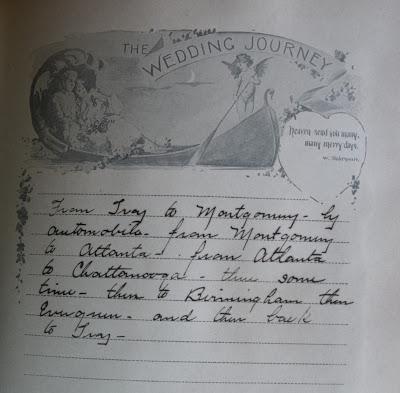 THE WEDDING JOURNEY
Heaven send you many,
many merry days.
W. Shakespeare.
From Troy to Montgomery - by
automobile - from Montgomery
to Atlanta - from Atlanta
to Chattanooga - there some
time - then to Birmingham then
Evergreen - and then back
to Troy -